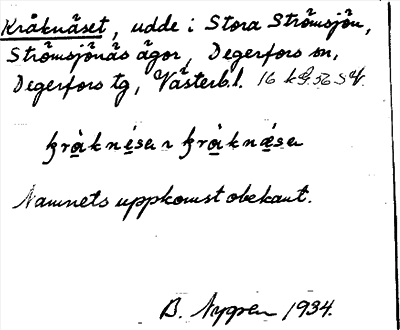 Kråknäset, udde i Stora Strömsjön,
Strömsjönäs ägor, Degerfors sn,
Degerfors tg, Västerb. l.
Namnets uppkomst obekant.
B. Nygren 1934.